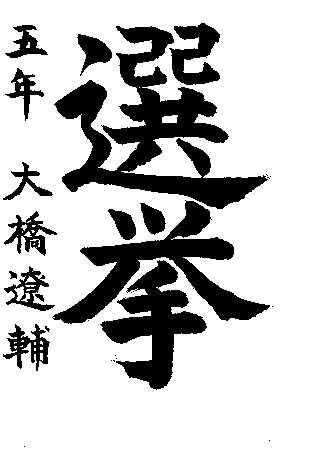 選挙
五年 大橋遼輔